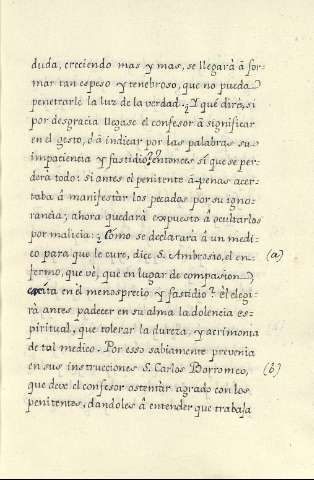 duda, creciendo mas y mas, se llegarà â for-
mar tan espeso y tenebroso, que no pueda
penetrarle la luz de la verdad. ¿Y què dirè, si
por desgracia llegase el confesor â significar
en el gesto, ô â indicar por las palabras su
impaciencia y fastidio? entonces sí que se per-
derà todo: si antes el penitente â penas acer-
taba â manifestàr los pecados por su igno-
rancia, ahora quedarà expuesto â ocultarlos
por malicia: ¿Cómo se declararà â un medi-
co para que le cure, dice S. Ambrosio, el en- (a)
fermo, que vè, que en lugar de compasion
excita en èl menosprecio y fastidio? èl elegi-
rà antes padecer en su alma la dolencia es-
piritual, que tolerar la dureza, y acrimonia
de tal medico. Por esso sabiamente prevenia
en sus instrucciones S. Carlos Borromeo, (b)
que deve el confesor ostentàr agrado con los
penitentes, dandoles â entender que trabaja